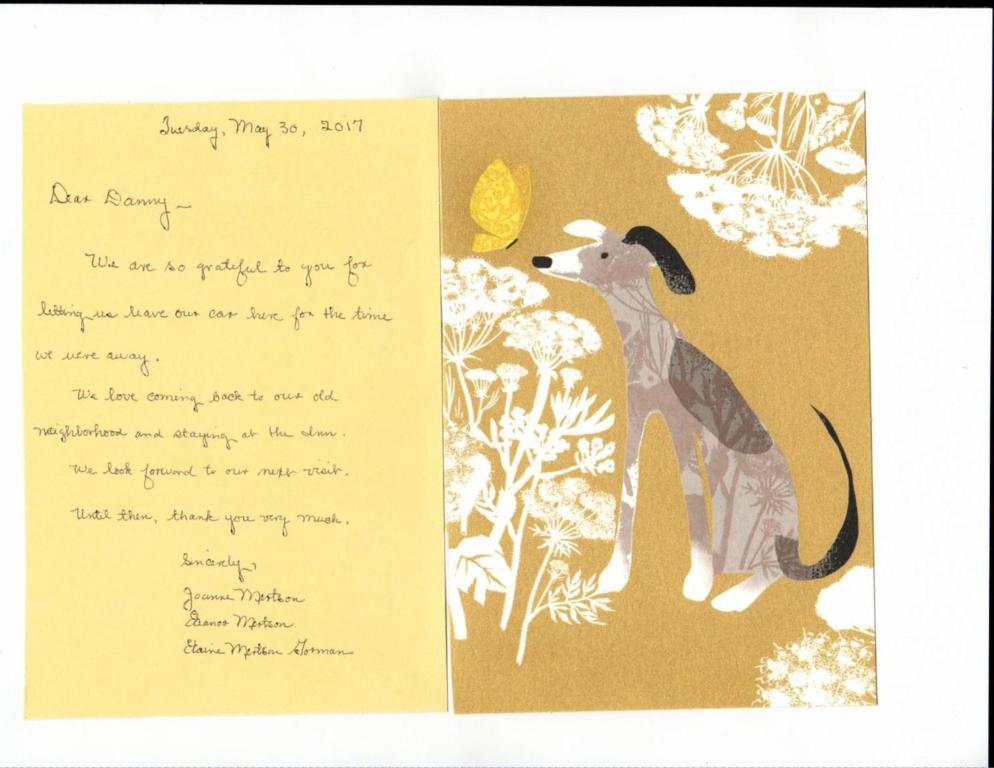 Tuesday, May 30, 2017
Dear Danny~
We are so grateful to you for
letting us leave our car here for the time
we were away.
We love coming back to our old
neighborhood and staying at the Inn.
We look forward to our next visit.
Until then, thank you very much.
Sincerely,
Joanne Mertson
Eleanor Mertson
Elaine Mertson Gorman